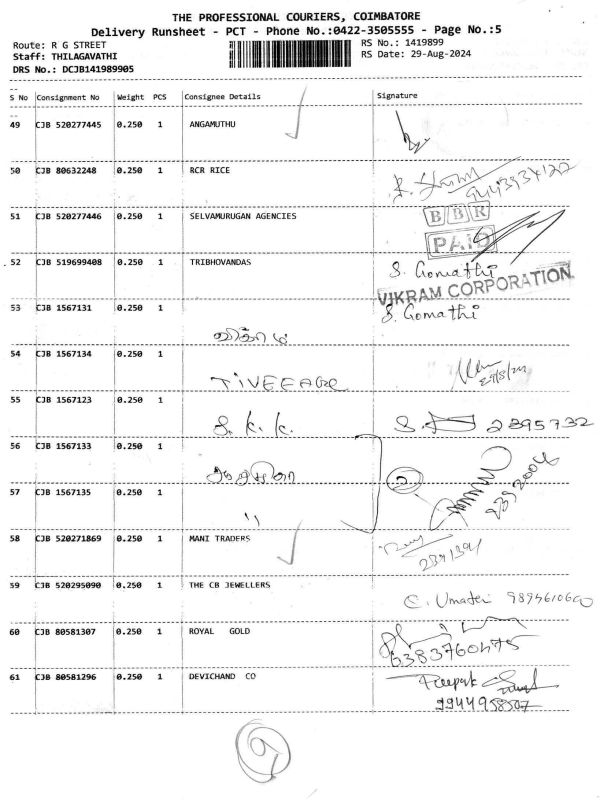 THE PROFESSIONAL COURIERS, COIMBATORE
Delivery Runsheet - PCT - Phone No.:0422-3505555 - Page No.:5
Route: R G STREET RS No.: 1419899
Staff: THILAGAVATHI RS Date: 29-Aug-2024
DRS No.: DCJB141989905
S No Consignment No Weight PCS Consignee Details Signature
49 CJB 520277445 0.250 1 ANGAMUTHU
50 CJB 80632248 0.250 1 RCR RICE
51 CJB 520277446 0.250 1 SELVAMURUGAN AGENCIES
BBR
PAID
52 CJB 519699408 0.250 1 TRIBHOVANDAS S. Gomathi
VIKRAM CORPORATION
53 CJB 1567131 0.250 1 S. Gomathi
54 CJB 1567134 0.250 1 29/8/24
55 CJB 1567123 0.250 1 S. K. K. 2395732
56 CJB 1567133 0.250 1
2392004
57 CJB 1567135 0.250 1 "
58 CJB 520271869 0.250 1 MANI TRADERS
59 CJB 520295090 0.250 1 THE CB JEWELLERS
60 CJB 80581307 0.250 1 ROYAL GOLD
61 CJB 80581296 0.250 1 DEVICHAND CO Deepak
9944958507